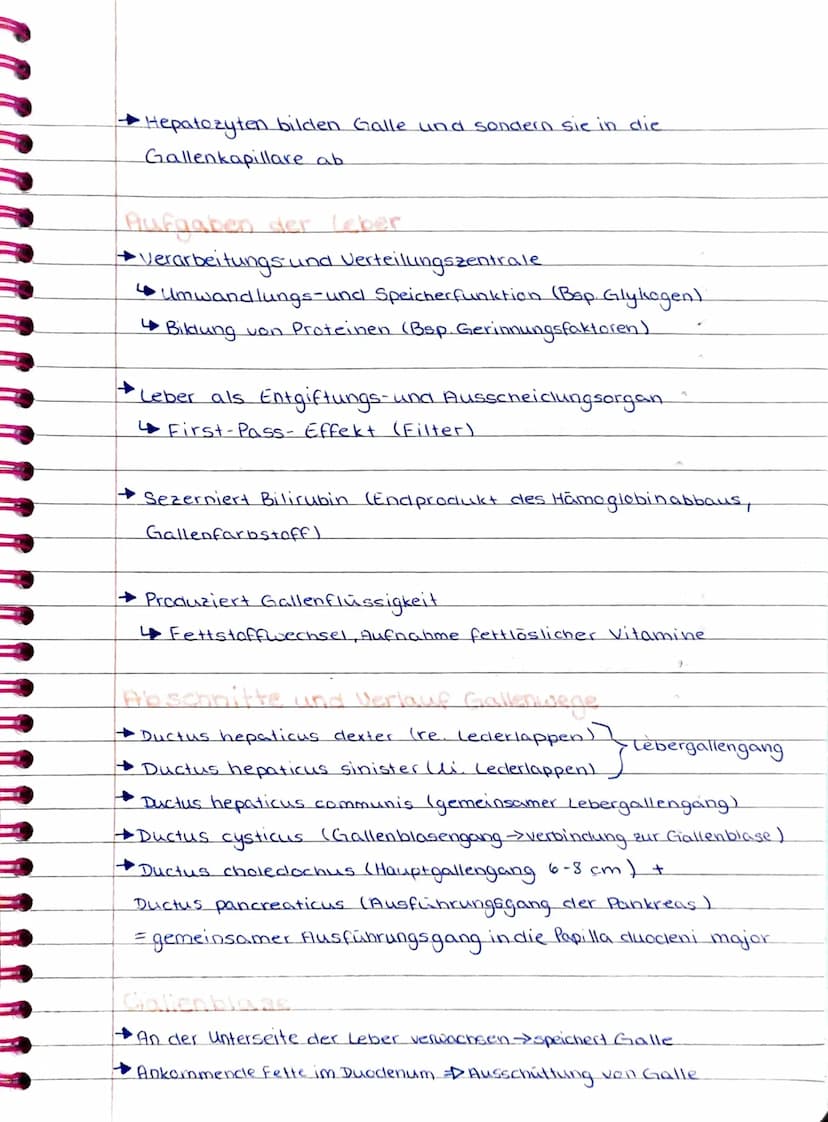 → Hepatozyten bilden Galle und sondern sie in die
Gallenkapillare ab
Aufgaben der Leber
→ Verarbeitungs- und Verteilungszentrale
↳ Umwandlungs- und Speicherfunktion (Bsp. Glykogen)
↳ Bildung von Proteinen (Bsp. Gerinnungsfaktoren)
→ Leber als Entgiftungs- und Ausscheidungsorgan
↳ First-Pass-Effekt (Filter)
→ Sezerniert Bilirubin (Endprodukt des Hämoglobinabbaus,
Gallenfarbstoff)
→ Produziert Gallenflüssigkeit
↳ Fettstoffwechsel, Aufnahme fettlöslicher Vitamine
Abschnitte und Verlauf Gallenwege
→ Ductus hepaticus dexter (re. Leberlappen) } Lebergallengang
→ Ductus hepaticus sinister (li. Leberlappen)
→ Ductus hepaticus communis (gemeinsamer Lebergallengang)
→ Ductus cysticus (Gallenblasengang → Verbindung zur Gallenblase)
→ Ductus choledochus (Hauptgallengang 6-8 cm) +
Ductus pancreaticus (Ausführungsgang der Pankreas)
= gemeinsamer Ausführungsgang in die Papilla duodeni major
Gallenblase
→ An der Unterseite der Leber verwachsen → speichert Galle
→ Ankommende Fette im Duodenum ⇒ Ausschüttung von Galle